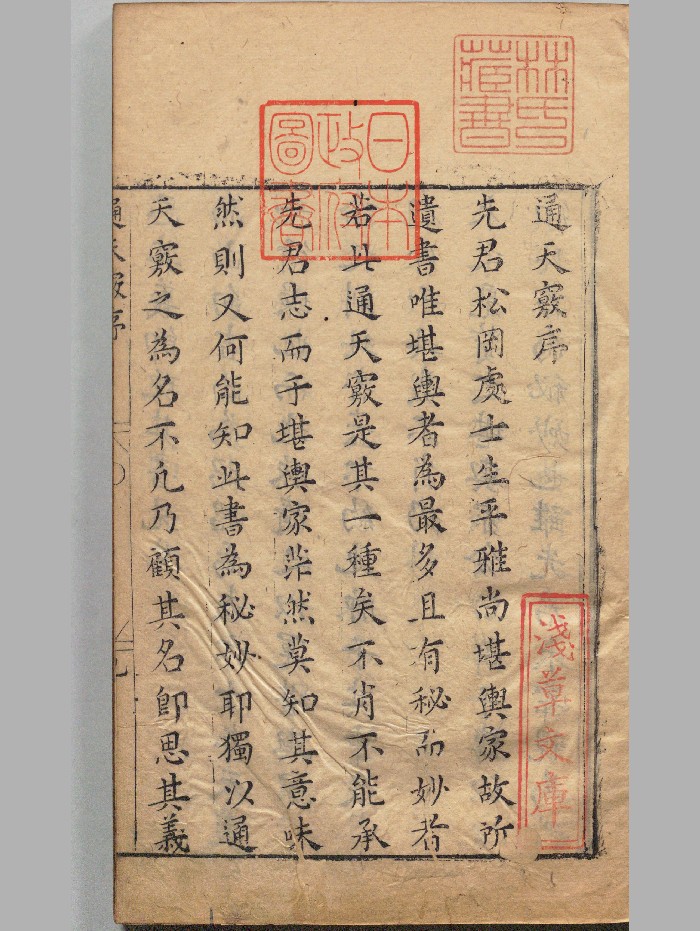 通天竅序
先君松岡處士生平雅尚堪輿家故所
遺書唯堪輿者為最多且有秘而妙者
若此通天竅是其一種矣不肖不能承
先君志而于堪輿家茫然莫知其意味
然則又何能知此書為秘妙耶獨以通
天竅之為名不凡乃顧其名卽思其義
通天竅序
林氏藏書
日本政府圖書
淺草文庫